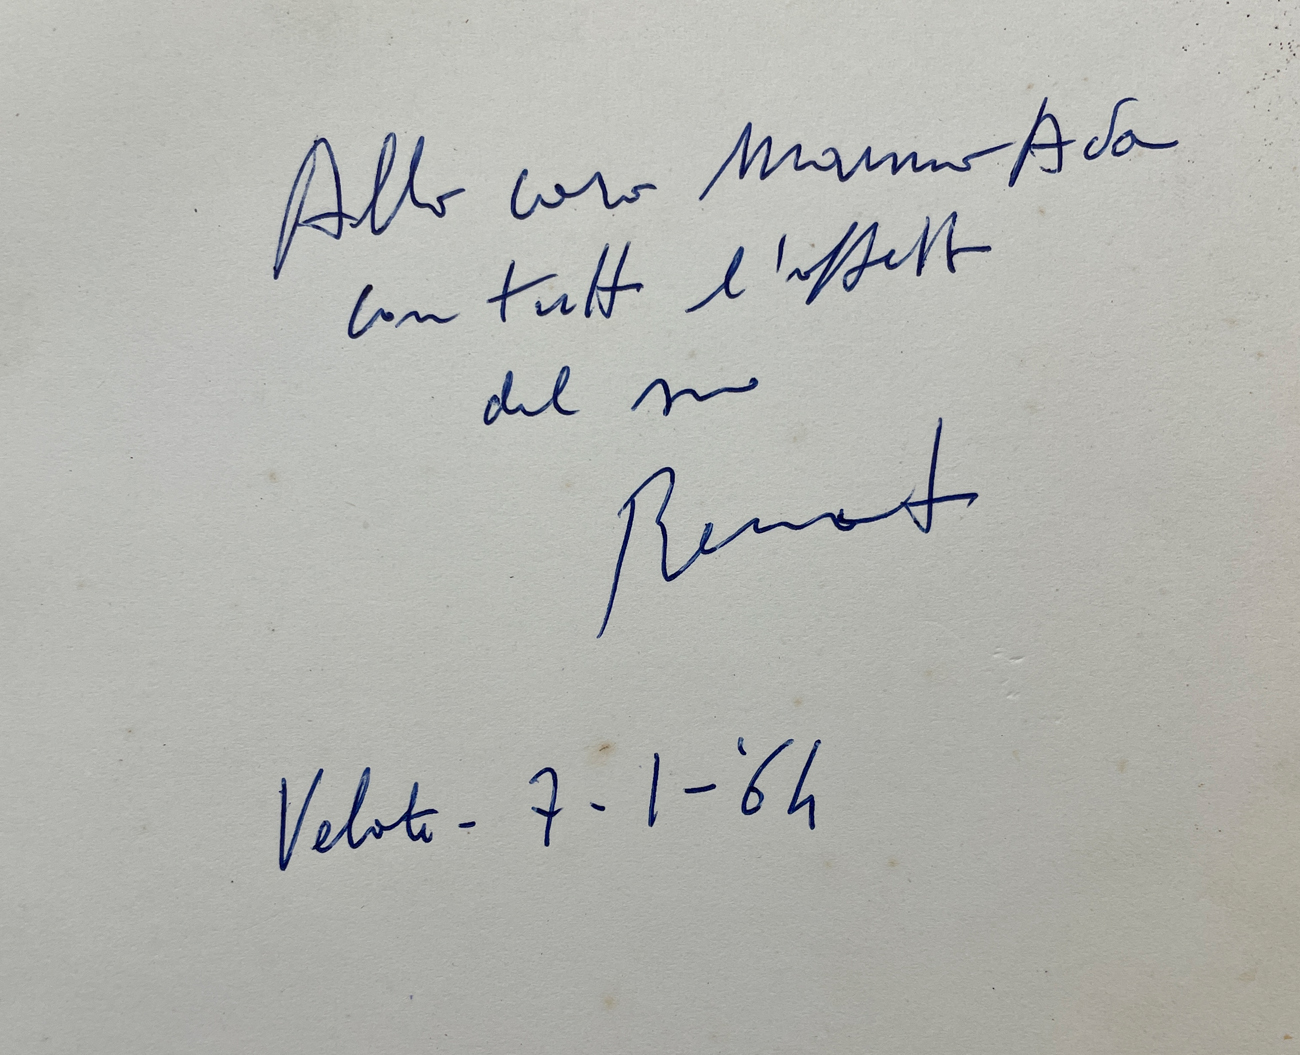 Alla cara Mamma Ada
con tutto l'affetto
del suo
Renato
Velate - 7 - 1 - '64